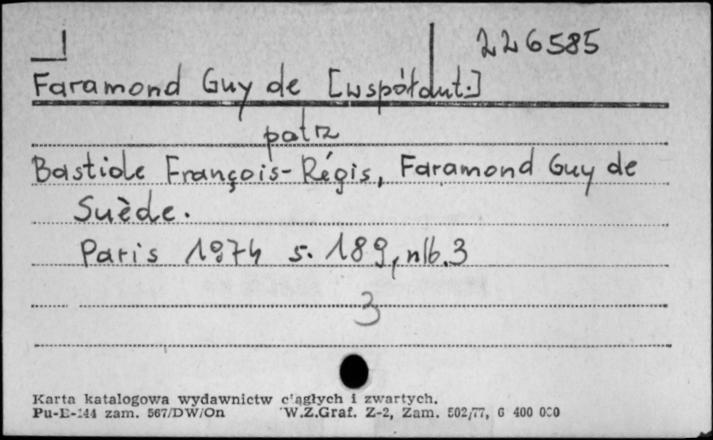 226585
Faramond Guy de [współaut.]
patrz
Bastide François-Régis, Faramond Guy de
Suède.
Paris 1974 s. 189, nlb. 3
3
Karta katalogowa wydawnictw ciągłych i zwartych.
Pu-E-144 zam. 567/DW/On W.Z.Graf. Z-2, Zam. 502/77, 6 400 000